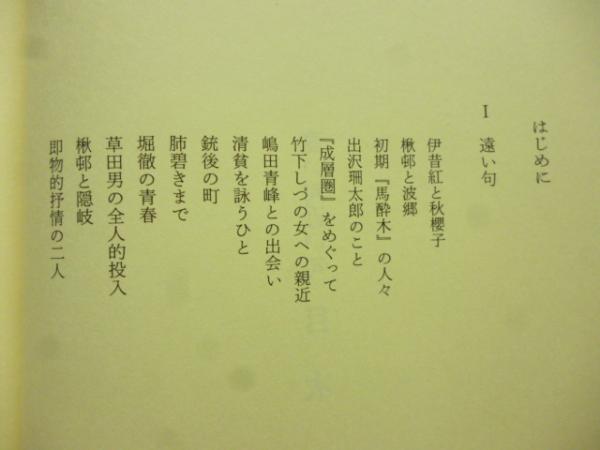 はじめに
Ⅰ 遠い句
伊昔紅と秋櫻子
楸邨と波郷
初期『馬酔木』の人々
出沢珊太郎のこと
『成層圏』をめぐって
竹下しづの女への親近
嶋田青峰との出会い
清貧を詠うひと
銃後の町
肺碧きまで
堀徹の青春
草田男の全人的投入
楸邨と隠岐
即物的抒情の二人